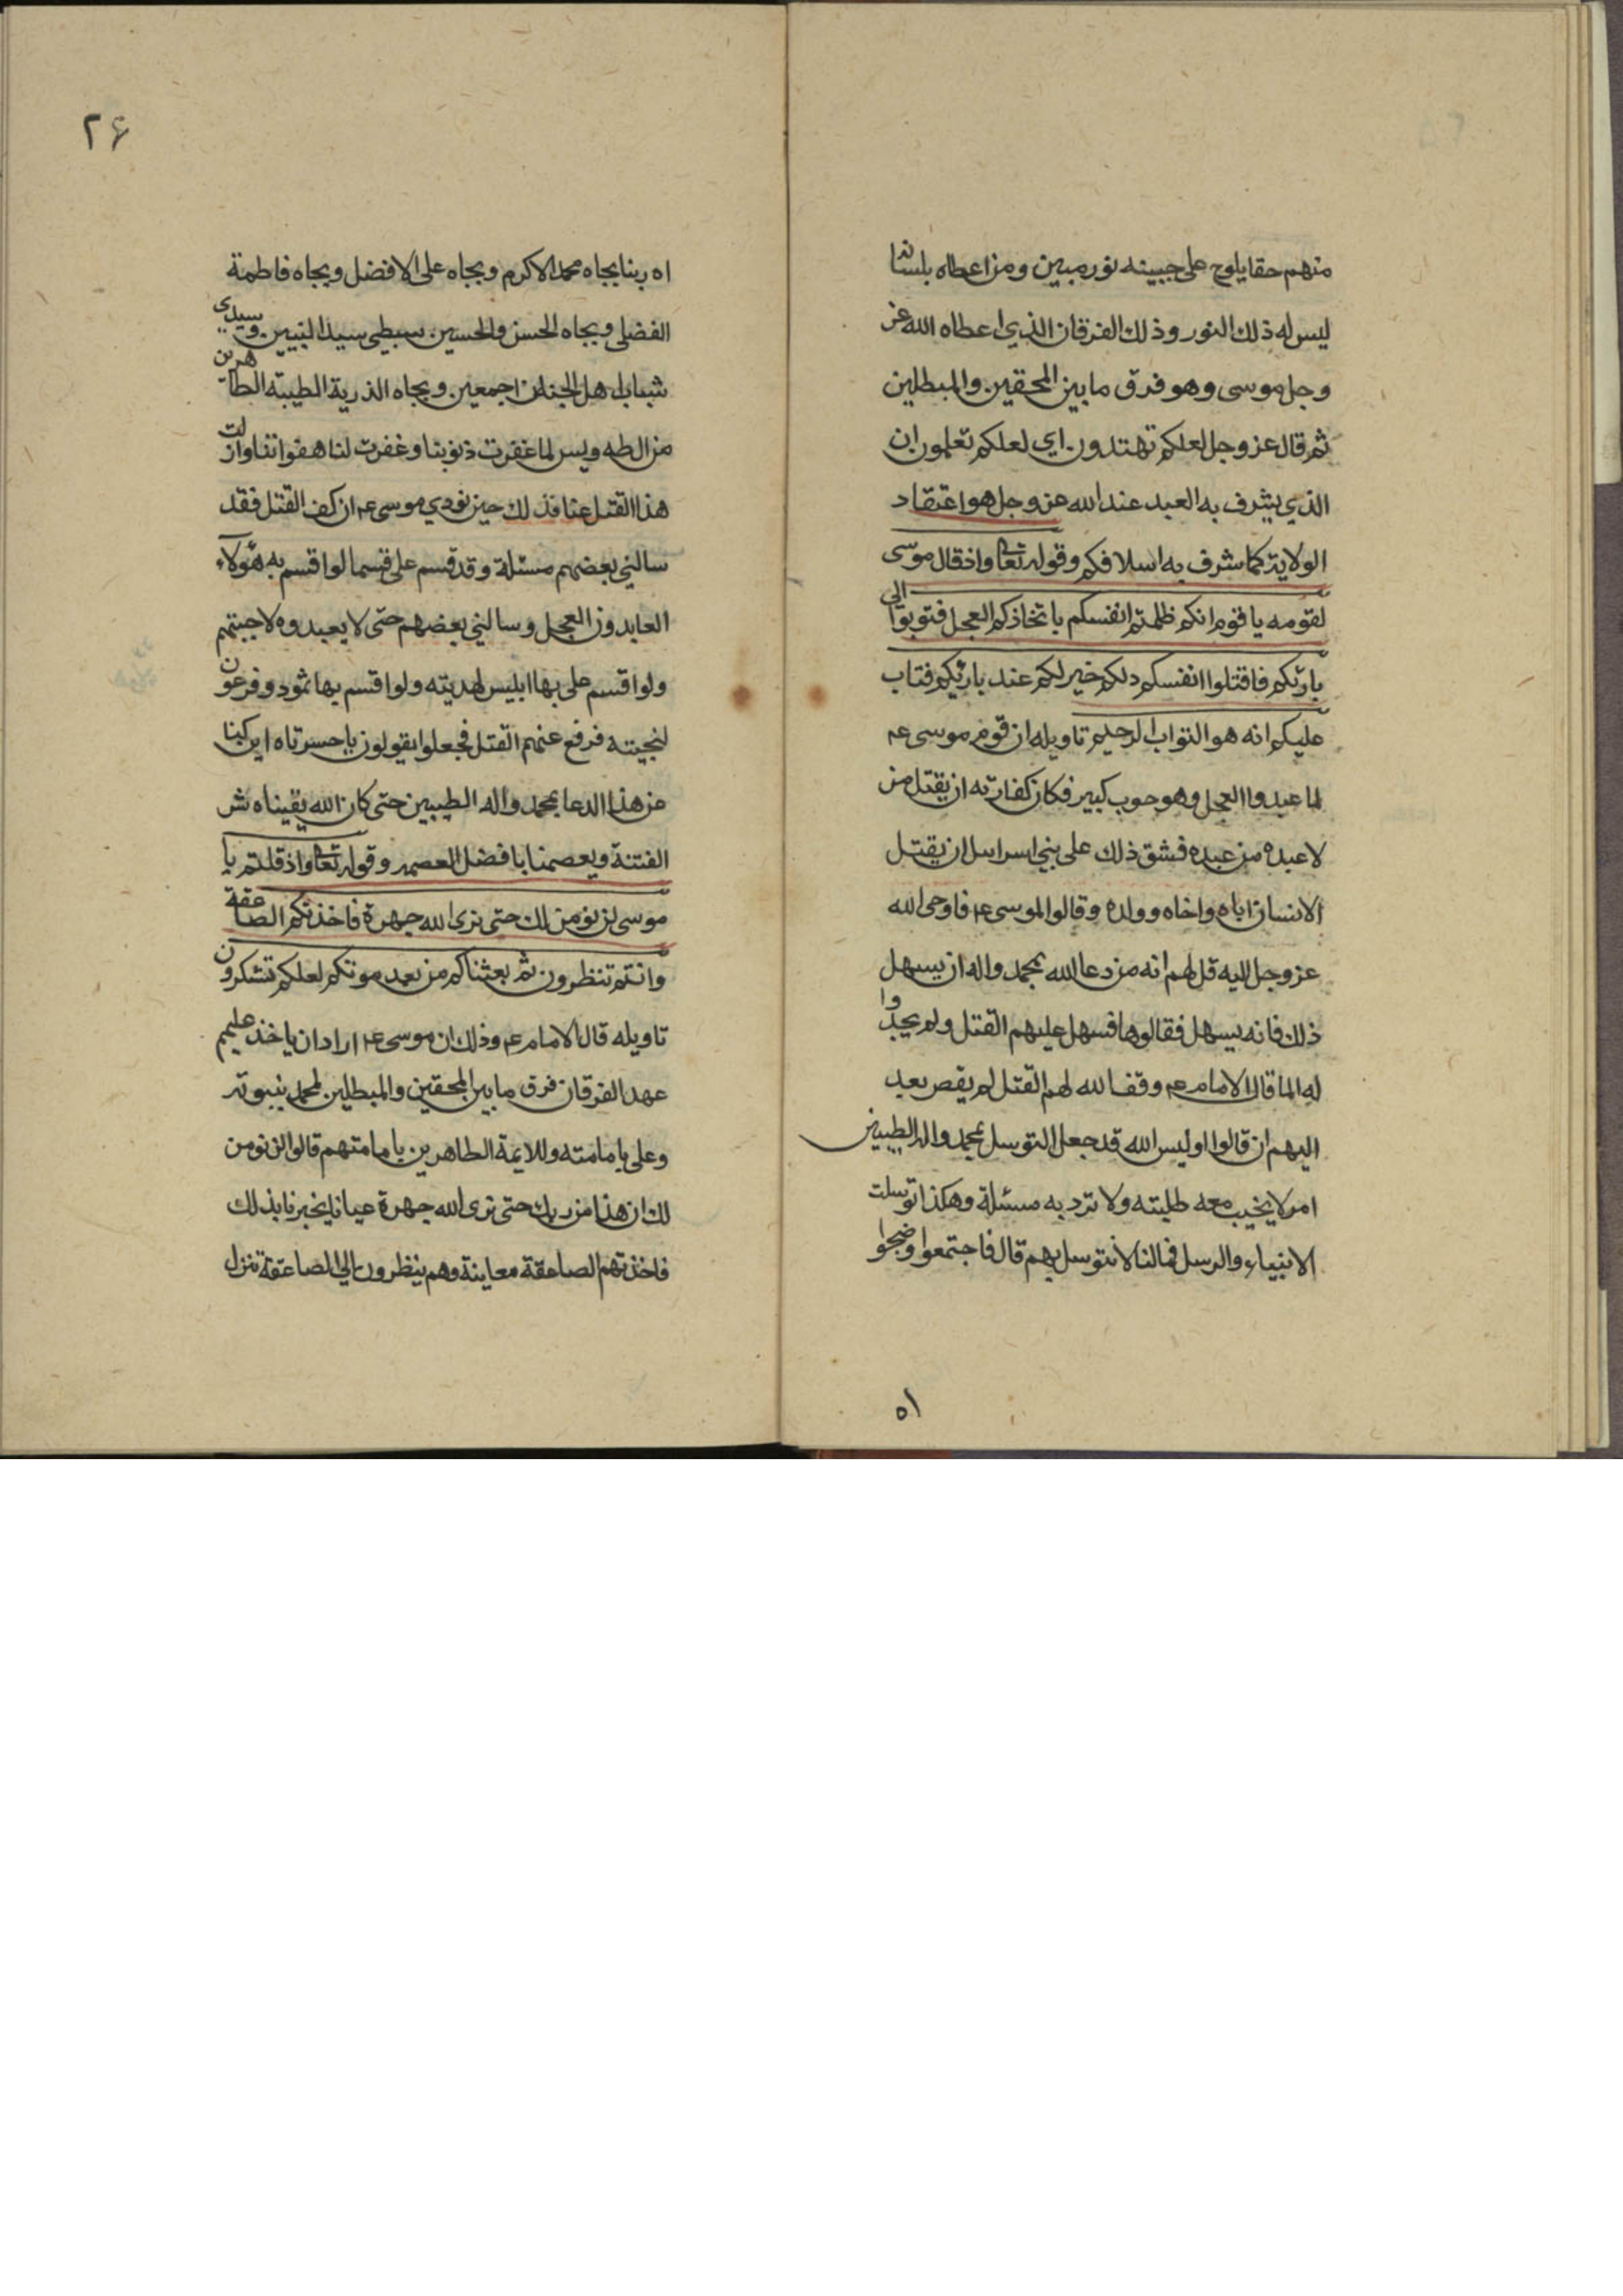 منهم حقا يلوح على جبينه نور مبين ومن اعطاه بلسانه
ليس له ذلك النور وذلك الفرقان الذي اعطاه الله عز
وجل موسى وهو فرق ما بين المحقين والمبطلين
ثم قال عز وجل لعلكم تهتدون اى لعلكم تعلمون ان
الذي يشرف به العبد عند الله عز وجل هو اعتقاد
الولاية كما شرف به اسلافكم وقوله تعالى واذ قال موسى
لقومه يا قوم انكم ظلمتم انفسكم باتخاذكم العجل فتوبوا الى
بارئكم فاقتلوا انفسكم ذلكم خير لكم عند بارئكم فتاب
عليكم انه هو التواب الرحيم تاويله ان قوم موسى عم
لما عبدوا العجل وهو حوب كبير فكان كفارته ان يقتل من
لا عبده من عبده فشق ذلك على بني اسرايل ان يقتل
الانسان اباه واخاه وولده وقالوا لموسى عم فاوحى الله
عز وجل اليه قل لهم انه من دعا الله بمحمد واله ان يسهل
ذلك فانه يسهل فقالوها فسهل عليهم القتل ولم يجدوا
له الما قال الامام عم وقف الله لهم القتل لم يقص بعد
اليهم ان قالوا اوليس الله قد جعل التوسل بمحمد واله الطيبين
امر لا يخيب معه طلبته ولا ترد به مسئلة وهكذا توسلت
الانبياء والرسل فمالنا لا نتوسل بهم قال فاجتمعوا وضجوا
٥١
٢۶
اه ربنا بجاه محمد الاكرم وبجاه على الافضل وبجاه فاطمة
الفضلى وبجاه الحسن والحسين سبطى سيد النبيين وسيدي
شباب اهل الجنان اجمعين وبجاه الذرية الطيبة الطاهرين
من ال طه ويس لما غفرت ذنوبنا وغفرت لنا هفواتنا وازلت
هذا القتل عنا فذلك حين نودي موسى عم ان كف القتل فقد
سالني بعضهم مسئلة وقد قسم على قسما لو اقسم به هؤلاء
العابدون العجل وسالني بعضهم حتى لا يعبدوه لاجبتهم
ولو اقسم على بها ابليس لهديته ولو اقسم بها ثمود وفرعون
لنجيته فرفع عنهم القتل فجعلوا يقولون يا حسرتاه اين كنا
عن هذا الدعا بمحمد واله الطيبين حتى كان الله يقيناه ش
الفتنة ويعصمنا بافضل العصمه وقوله تعالى واذ قلتم يا
موسى لن نومن لك حتى نرى الله جهرة فاخذتكم الصاعقة
وانتم تنظرون ثم بعثناكم من بعد موتكم لعلكم تشكرون
تاويله قال الامام عم وذلك ان موسى عم اراد ان ياخذ عليهم
عهد الفرقان فرق ما بين المحقين والمبطلين لمحمد بنبوته
وعلى بامامته وللايمة الطاهرين بامامتهم قالوا لن نومن
لك ان هذا من ربك حتى نرى الله جهرة عيانا يخبرنا بذلك
فاخذتهم الصاعقة معاينة وهم ينظرون الى الصاعقة تنزل